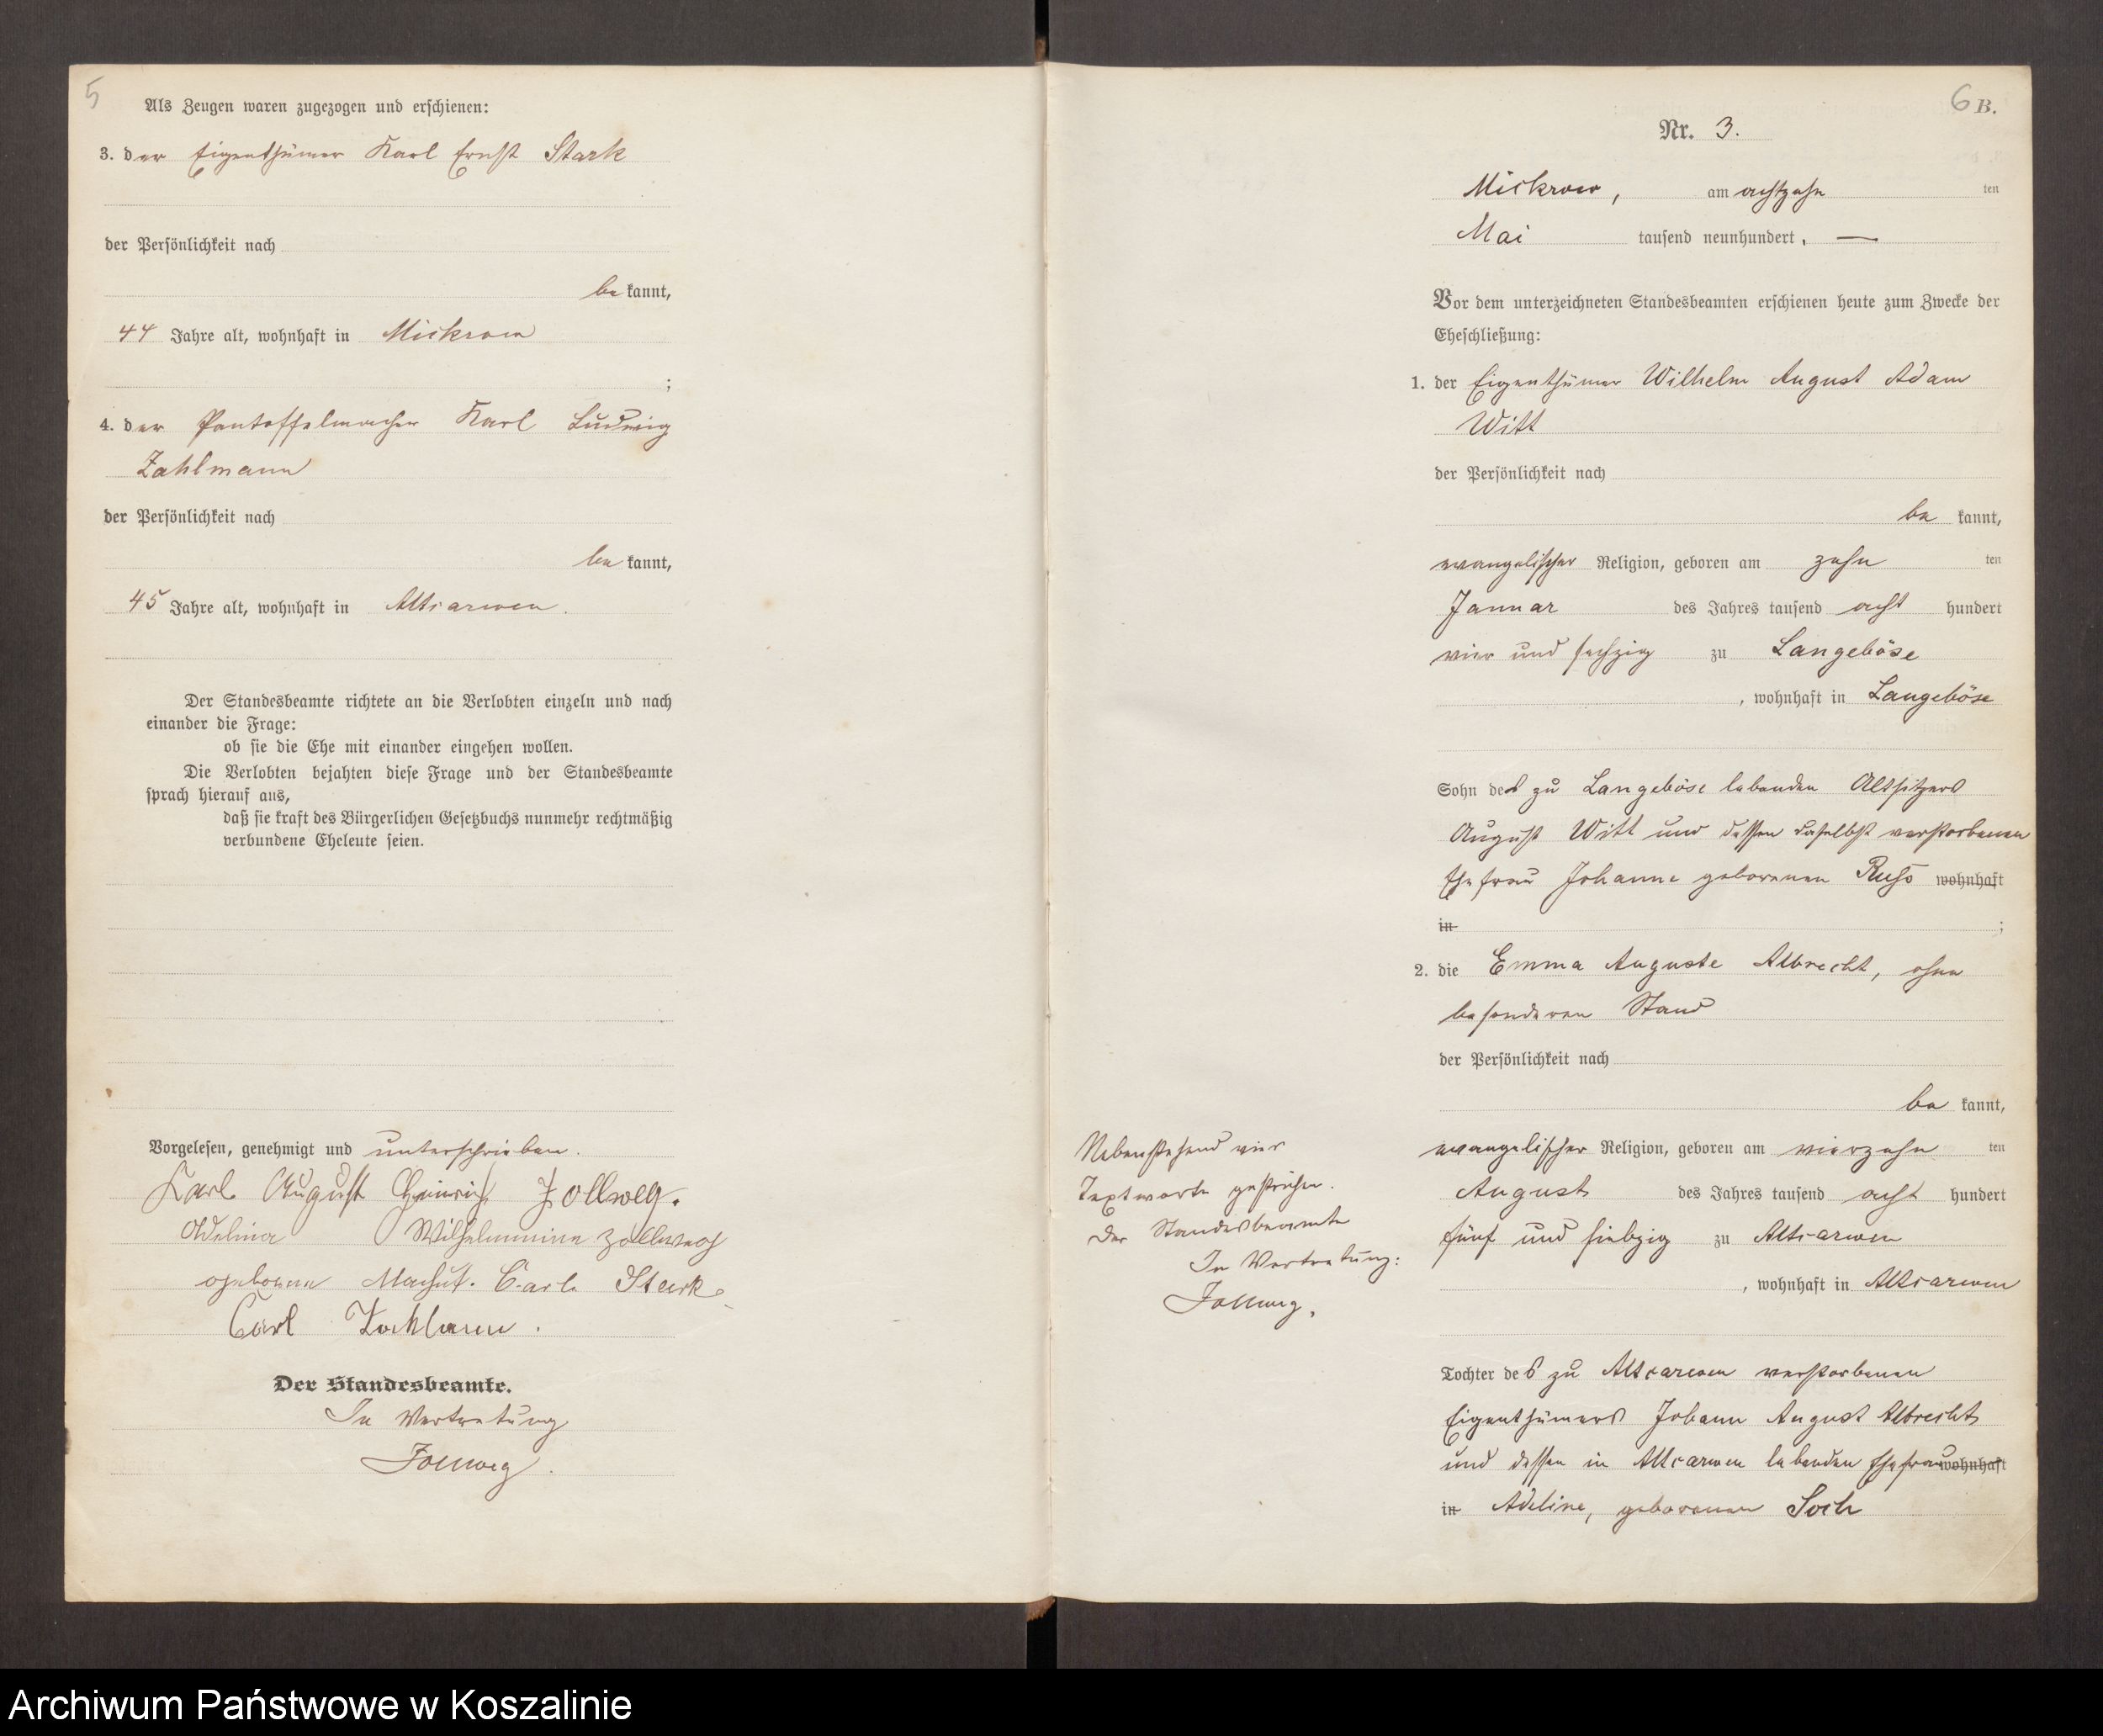 5
Als Zeugen waren zugezogen und erschienen:
3. der Eigenthümer Karl Ernst Stark
der Persönlichkeit nach
be kannt,
44 Jahre alt, wohnhaft in Mickrow
;
4. der Pantoffelmacher Karl Ludwig
Zahlmann
der Persönlichkeit nach
be kannt,
45 Jahre alt, wohnhaft in Altcarwen.
Der Standesbeamte richtete an die Verlobten einzeln und nach
einander die Frage:
ob sie die Ehe mit einander eingehen wollen.
Die Verlobten bejahten diese Frage und der Standesbeamte
sprach hierauf aus,
daß sie kraft des Bürgerlichen Gesetzbuchs nunmehr rechtmäßig
verbundene Eheleute seien.
Vorgelesen, genehmigt und unterschrieben.
Karl August Heinrich Zollweg.
Adelina Wilhelmmine Zollweg
geborene Carl Stark
Carl Zahlmann.
Der Standesbeamte.
In Vertretung
Zollweg.
6 B.
Nr. 3.
Mickrow, am achtzehn ten
Mai tausend neunhundert. —
Vor dem unterzeichneten Standesbeamten erschienen heute zum Zwecke der
Eheschließung:
1. der Eigenthümer Wilhelm August Adam
Witt
der Persönlichkeit nach
be kannt,
evangelischer Religion, geboren am zehn ten
Januar des Jahres tausend acht hundert
vier und sechzig zu Langeböse
, wohnhaft in Langeböse
Sohn des zu Langeböse lebenden Altsitzers
August Witt und dessen daselbst verstorbenen
Ehefrau Johanne geborenen wohnhaft
in ;
2. die Emma Auguste Albrecht, ohne
besonderen Stand
der Persönlichkeit nach
be kannt,
Nebenstehend vier
Textworte gestrichen.
Der Standesbeamte
In Vertretung:
Zollweg.
evangelischer Religion, geboren am vierzehn ten
August des Jahres tausend acht hundert
fünf und siebzig zu Altcarwen
, wohnhaft in Altcarwen
Tochter des zu Altcarwen verstorbenen
Eigenthümers Johann August Albrecht
und dessen in Altcarwen lebenden Ehefrau wohnhaft
in Adeline, geborenen Soch
Archiwum Państwowe w Koszalinie